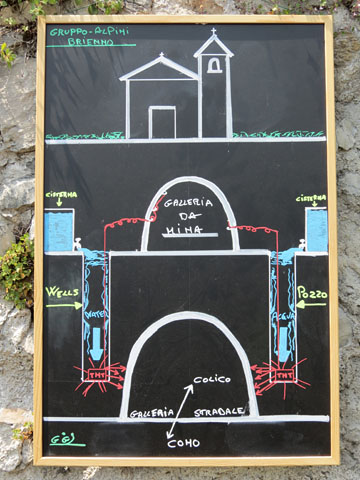 GRUPPO-ALPINI
BRIENNO
CISTERNA
CISTERNA
GALLERIA
DA
MINA
WELLS
POZZO
WATER
ACQUA
TNT
TNT
COLICO
GALLERIA STRADALE
COMO